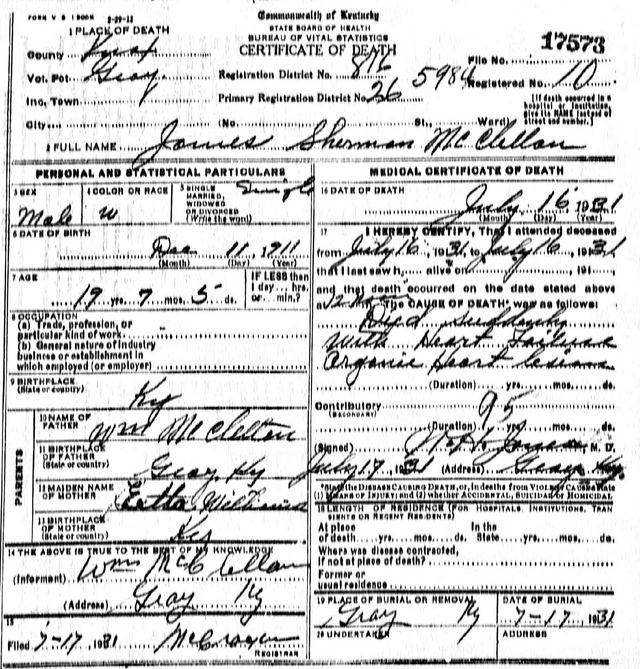 FORM V S 1 500M 2-29-12
Commonwealth of Kentucky
STATE BOARD OF HEALTH
BUREAU OF VITAL STATISTICS
CERTIFICATE OF DEATH
17573
1 PLACE OF DEATH
County Knox
Vot. Pct. Gray
Inc. Town
City (No. St., Ward)
Registration District No. 816
Primary Registration District No. 26 5984
File No.
Registered No. 10
[If death occurred in a hospital or institution, give its NAME instead of street and number.]
2 FULL NAME James Sherman McClellan
PERSONAL AND STATISTICAL PARTICULARS
3 SEX Male
4 COLOR OR RACE W
5 SINGLE, MARRIED, WIDOWED OR DIVORCED (Write the word) Single
6 DATE OF BIRTH
Dec 11, 1911
(Month) (Day) (Year)
7 AGE
19 yrs. 7 mos. 5 ds.
IF LESS than 1 day ... hrs. or ... min.?
8 OCCUPATION
(a) Trade, profession, or particular kind of work
(b) General nature of industry business or establishment in which employed (or employer)
9 BIRTHPLACE (State or country)
Ky
PARENTS
10 NAME OF FATHER
Wm McClellan
11 BIRTHPLACE OF FATHER (State or country)
Gray, Ky
12 MAIDEN NAME OF MOTHER Williams
13 BIRTHPLACE OF MOTHER (State or country)
Ky
14 THE ABOVE IS TRUE TO THE BEST OF MY KNOWLEDGE
(Informant) Wm McClellan
(Address) Gray Ky
15
Filed 7-17, 1931
REGISTRAR
MEDICAL CERTIFICATE OF DEATH
16 DATE OF DEATH
July 16, 1931
(Month) (Day) (Year)
17 I HEREBY CERTIFY, That I attended deceased
from July 16, 1931, to July 16, 1931
that I last saw h... alive on ..., 191...
and that death occurred on the date stated above
at 12 M. The CAUSE OF DEATH* was as follows:
Died suddenly
with Heart Failure
Organic Heart lesions
(Duration) yrs. mos. ds.
Contributory (SECONDARY) 95
(Duration) yrs. mos. ds.
(Signed) M. D.
July 17, 1931 (Address) Gray, Ky.
*State the DISEASE CAUSING DEATH, or, in deaths from VIOLENT CAUSES state (1) MEANS OF INJURY; and (2) whether ACCIDENTAL, SUICIDAL or HOMICIDAL
18 LENGTH OF RESIDENCE (FOR HOSPITALS, INSTITUTIONS, TRANSIENTS OR RECENT RESIDENTS)
At place of death yrs. mos. ds. In the State yrs. mos. ds.
Where was disease contracted, if not at place of death?
Former or usual residence
19 PLACE OF BURIAL OR REMOVAL
Gray Ky
DATE OF BURIAL
7-17, 1931
20 UNDERTAKER
ADDRESS